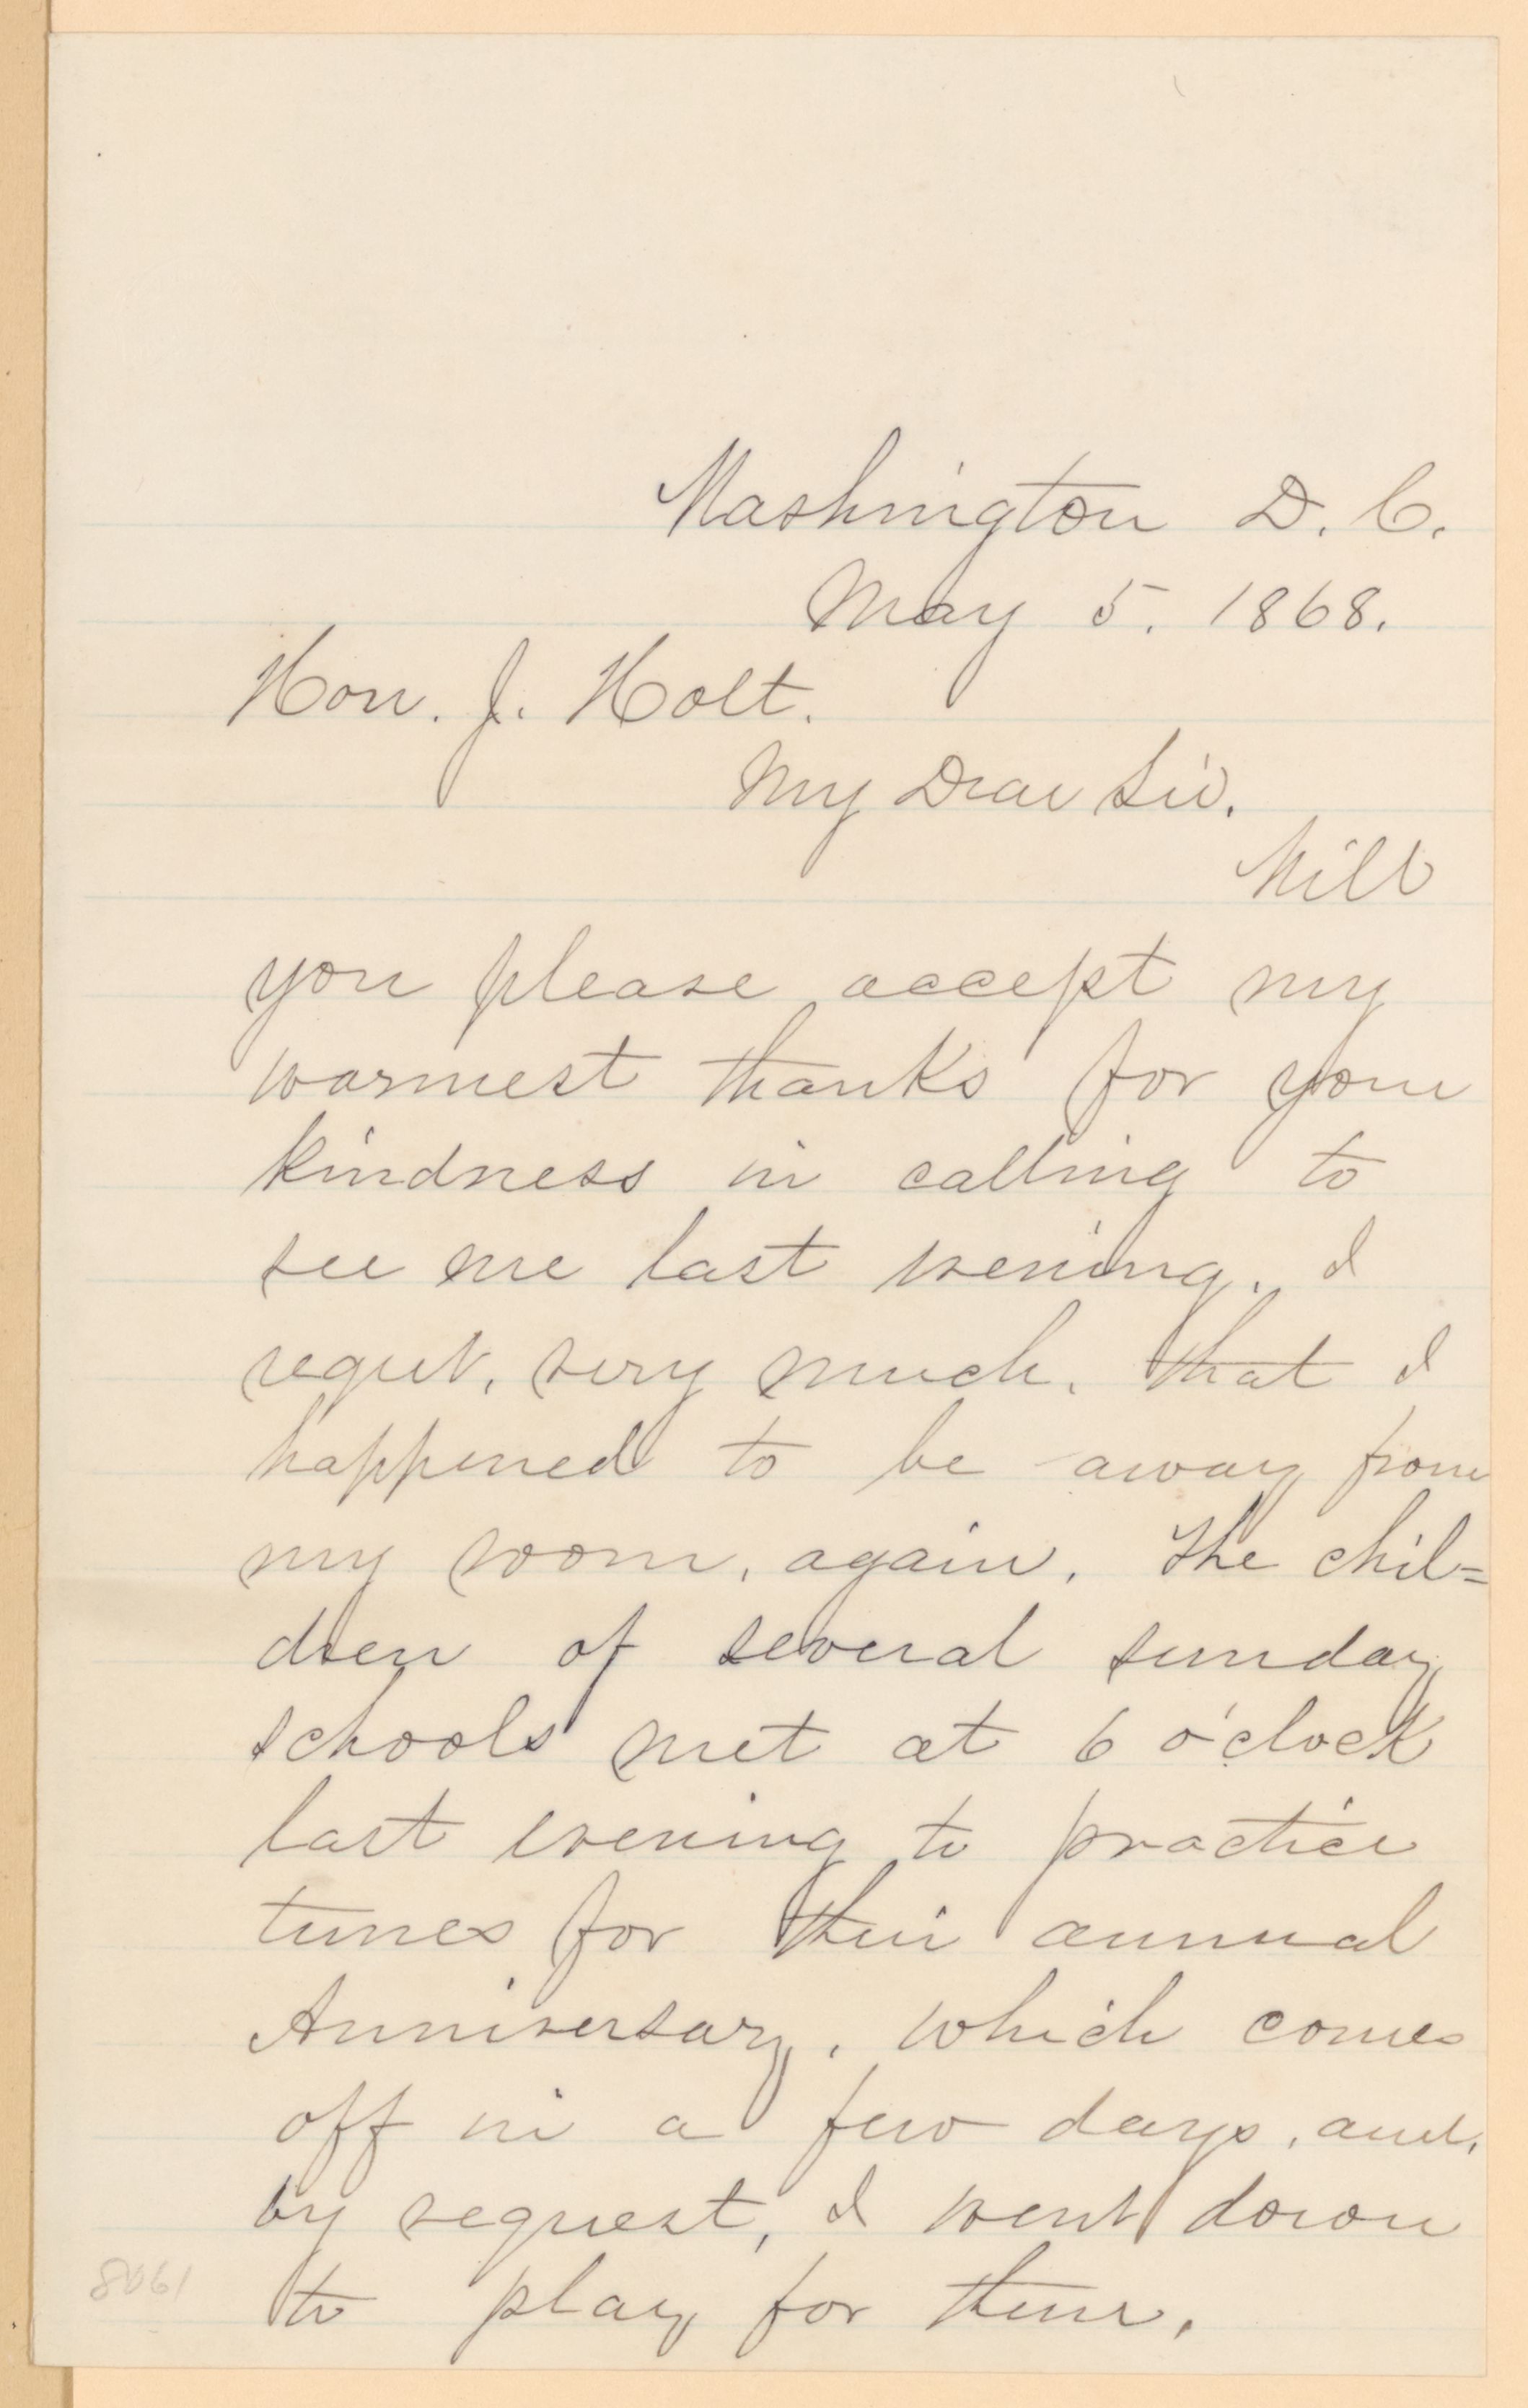 Washington D. C.
May 5. 1868.
Hon. J. Holt.
My Dear Sir.
Will
you please accept my
warmest thanks for your
kindness in calling to
see me last evening. I
regret, very much, that I
happened to be away from
my room, again. The chil=
dren of several sunday
schools met at 6 o'clock
last evening to practice
tunes for their annual
Anniversary, which comes
off in a few days, and,
by request, I went down
to play for them.
8061